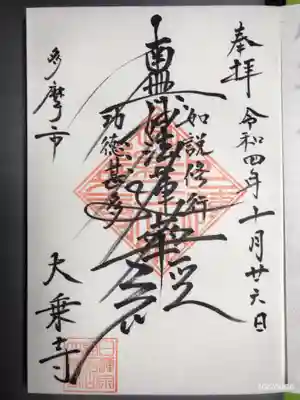 奉拝
令和四年十一月廿六日
如説修行
南無妙法蓮華経
功徳甚多
多摩市
大乗寺